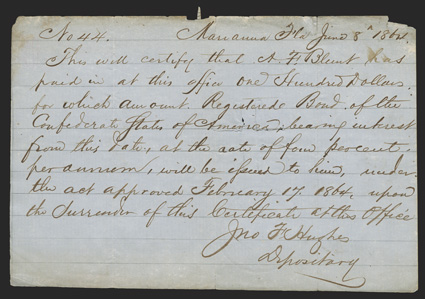 No 44. Marianna Fla June 8th 1864
This will certify that A. F. Blunt, has
paid in at this office one Hundred Dollars
for which amount Registered Bond, of the
Confederate States of America, bearing interest
from this date, at the rate of four percent
per annum, will be issued to him, under
the act approved February 17, 1864, upon
the Surrender of this Certificate at this Office
Jno F Hughes
Depositary